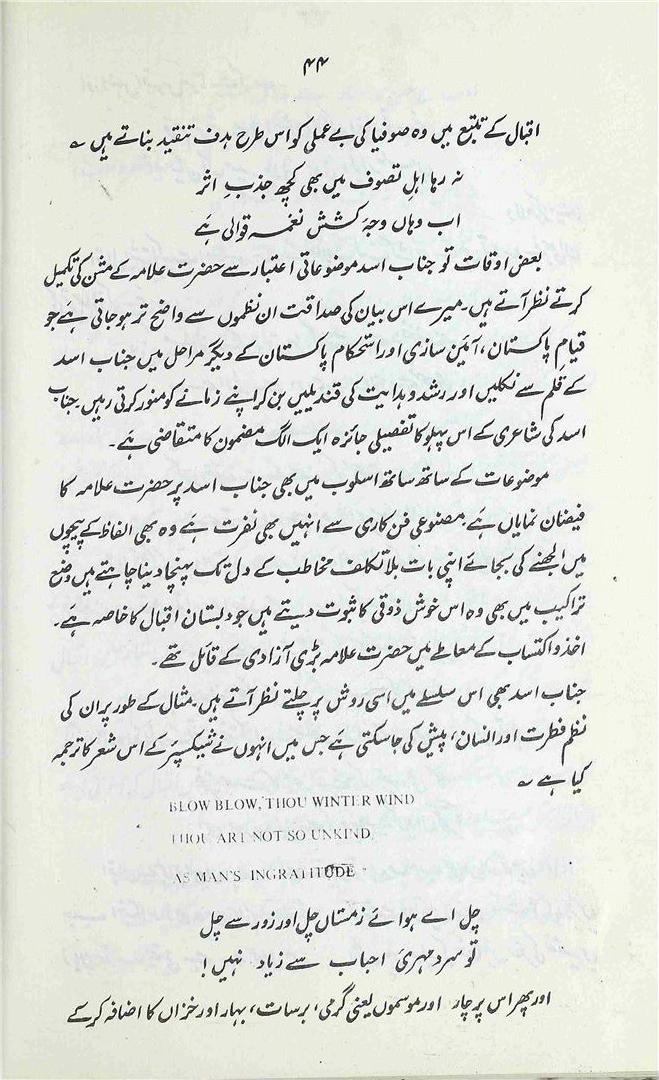 ۴۴
اقبال کے تتبع میں وہ صوفیا کی بے عملی کو اس طرح ہدف تنقید بناتے ہیں ؎
نہ رہا اہلِ تصوف میں بھی کچھ جذبِ اثر
اب وہاں وجہَ کشش نغمہ قوالی ہَے
بعض اوقات تو جناب اسد موضوعاتی اعتبار سے حضرت علامہ کے مشن کی تکمیل
کرتے نظر آتے ہیں۔ میرے اس بیان کی صداقت ان نظموں سے واضح تر ہو جاتی ہَے جو
قیامِ پاکستان، آئین سازی اور استحکام پاکستان کے دیگر مراحل میں جناب اسد
کے قلم سے نکلیں اور رشد و ہدایت کی قندیلیں بن کر اپنے زمانے کو منور کرتی رہیں۔ جناب
اسد کی شاعری کے اس پہلو کا تفصیلی جائزہ ایک الگ مضمون کا متقاضی ہَے۔
موضوعات کے ساتھ ساتھ اسلوب میں بھی جناب اسد پر حضرت علامہ کا
فیضان نمایاں ہَے۔ مصنوعی فن کاری سے انہیں بھی نفرت ہَے وہ بھی الفاظ کے پیچوں
میں الجھنے کی بجائے اپنی بات بلا تکلف مخاطب کے دل تک پہنچا دینا چاہتے ہیں وضع
تراکیب میں بھی وہ اس خوش ذوقی کا ثبوت دیتے ہیں جو دبستان اقبال کا خاصہ ہَے۔
اخذ و اکتساب کے معاملے میں حضرت علامہ بڑی آزادی کے قائل تھے۔
جناب اسد بھی اس سلسلے میں اسی روش پر چلتے نظر آتے ہیں۔ مثال کے طور پر ان کی
نظم فطرت اور انسان، پیش کی جا سکتی ہَے جس میں انہوں نے شیکسپئر کے اس شعر کا ترجمہ
کیا ہے ؎
BLOW BLOW, THOU WINTER WIND
THOU ART NOT SO UNKIND,
AS MAN'S INGRATITUDE
چل اے ہوائے زمستاں چل اور زور سے چل
تو سرد مہریَ احباب سے زیاد نہیں!
اور پھر اس پر چار اور موسموں یعنی گرمی، برسات، بہار اور خزاں کا اضافہ کر کے